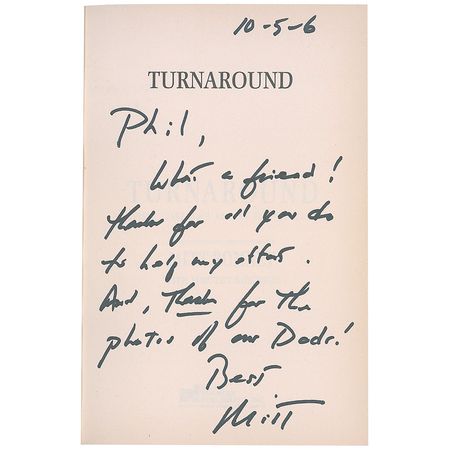 10-5-6
TURNAROUND
Phil,
What a friend!
Thanks for all you do
to help my effort.
And, thanks for the
photos of our Dads!
Best
Mitt
TURNAROUND